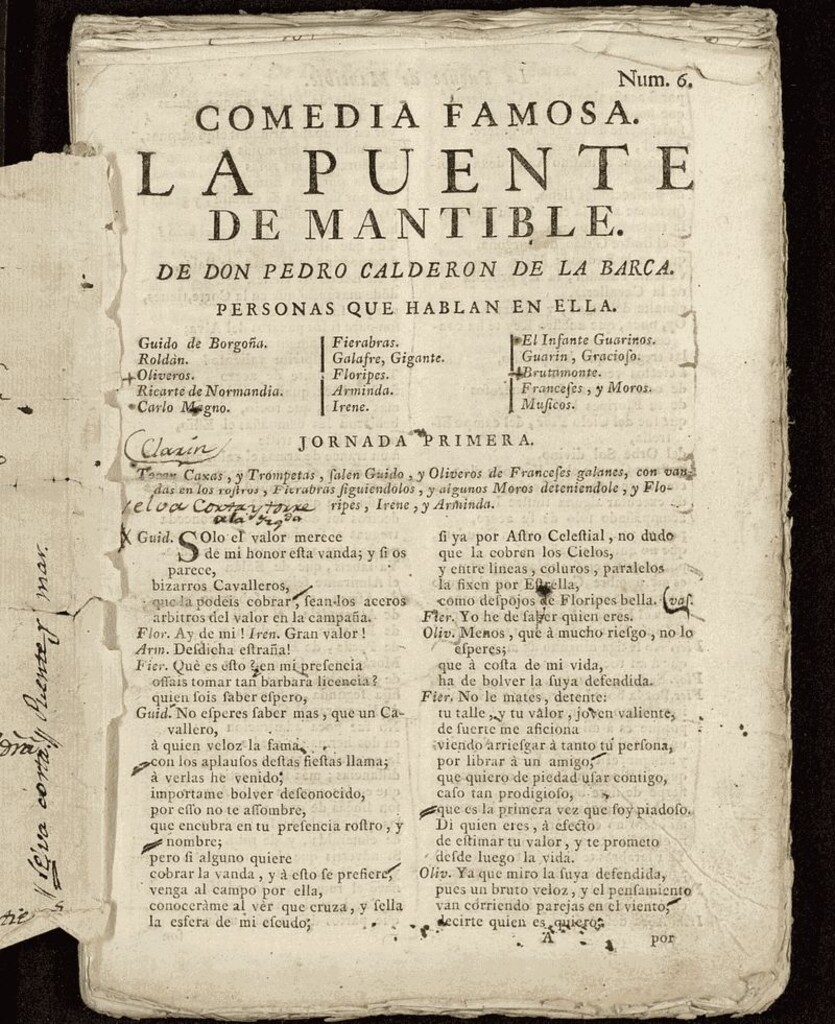 Num. 6.
COMEDIA FAMOSA.
LA PUENTE
DE MANTIBLE.
DE DON PEDRO CALDERON DE LA BARCA.
PERSONAS QUE HABLAN EN ELLA.
Guido de Borgoña.
Roldán.
Oliveros.
Ricarte de Normandia.
Carlo Magno.
Fierabras.
Galafre, Gigante.
Floripes.
Arminda.
Irene.
El Infante Guarinos.
Guarin, Gracioſo.
Brutamonte.
Franceſes, y Moros.
Muſicos.
JORNADA PRIMERA.
Clarin
Tocan Caxas, y Trompetas, ſalen Guido, y Oliveros de Franceſes galanes, con van-
das en los roſtros, Fierabras ſiguiendolos, y algunos Moros deteniendole, y Flo-
ripes, Irene, y Arminda.
selva Corta y torre
a la
Guid. SOlo el valor merece
de mi honor eſta vanda; y ſi os
parece,
bizarros Cavalleros,
que la podeis cobrar, ſean los aceros
arbitros del valor en la campaña.
Flor. Ay de mi! Iren. Gran valor!
Arm. Deſdicha eſtraña!
Fier. Què es eſto? en mi preſencia
oſſais tomar tan barbara licencia?
quien ſois ſaber eſpero,
Guid. No eſperes ſaber mas, que un Ca-
vallero,
à quien veloz la fama,
con los aplauſos deſtas fieſtas llama;
à verlas he venido;
importame bolver deſconocido,
por eſſo no te aſſombre,
que encubra en tu preſencia roſtro, y
nombre;
pero ſi alguno quiere
cobrar la vanda, y à eſto ſe prefiere,
venga al campo por ella,
conoceràme al vèr que cruza, y ſella
la esfera de mi eſcudo;
ſi ya por Aſtro Celeſtial, no dudo
que la cobren los Cielos,
y entre lineas, coluros, paralelos
la fixen por Eſtrella,
como deſpojos de Floripes bella. (vaſ.
Fier. Yo he de ſaber quien eres.
Oliv. Menos, que à mucho rieſgo, no lo
eſperes;
que à coſta de mi vida,
ha de bolver la ſuya defendida.
Fier. No le mates, detente:
tu talle, y tu valor, joven valiente,
de ſuerte me aficiona
viendo arrieſgar à tanto tu perſona,
por librar à un amigo,
que quiero de piedad uſar contigo,
caſo tan prodigioſo,
que es la primera vez que ſoy piadoſo.
Di quien eres, à efecto
de eſtimar tu valor, y te prometo
deſde luego la vida.
Oliv. Ya que miro la ſuya defendida,
pues un bruto veloz, y el penſamiento
van corriendo parejas en el viento,
decirte quien es quiero;
A
por
selva corta, y Puente y mar.